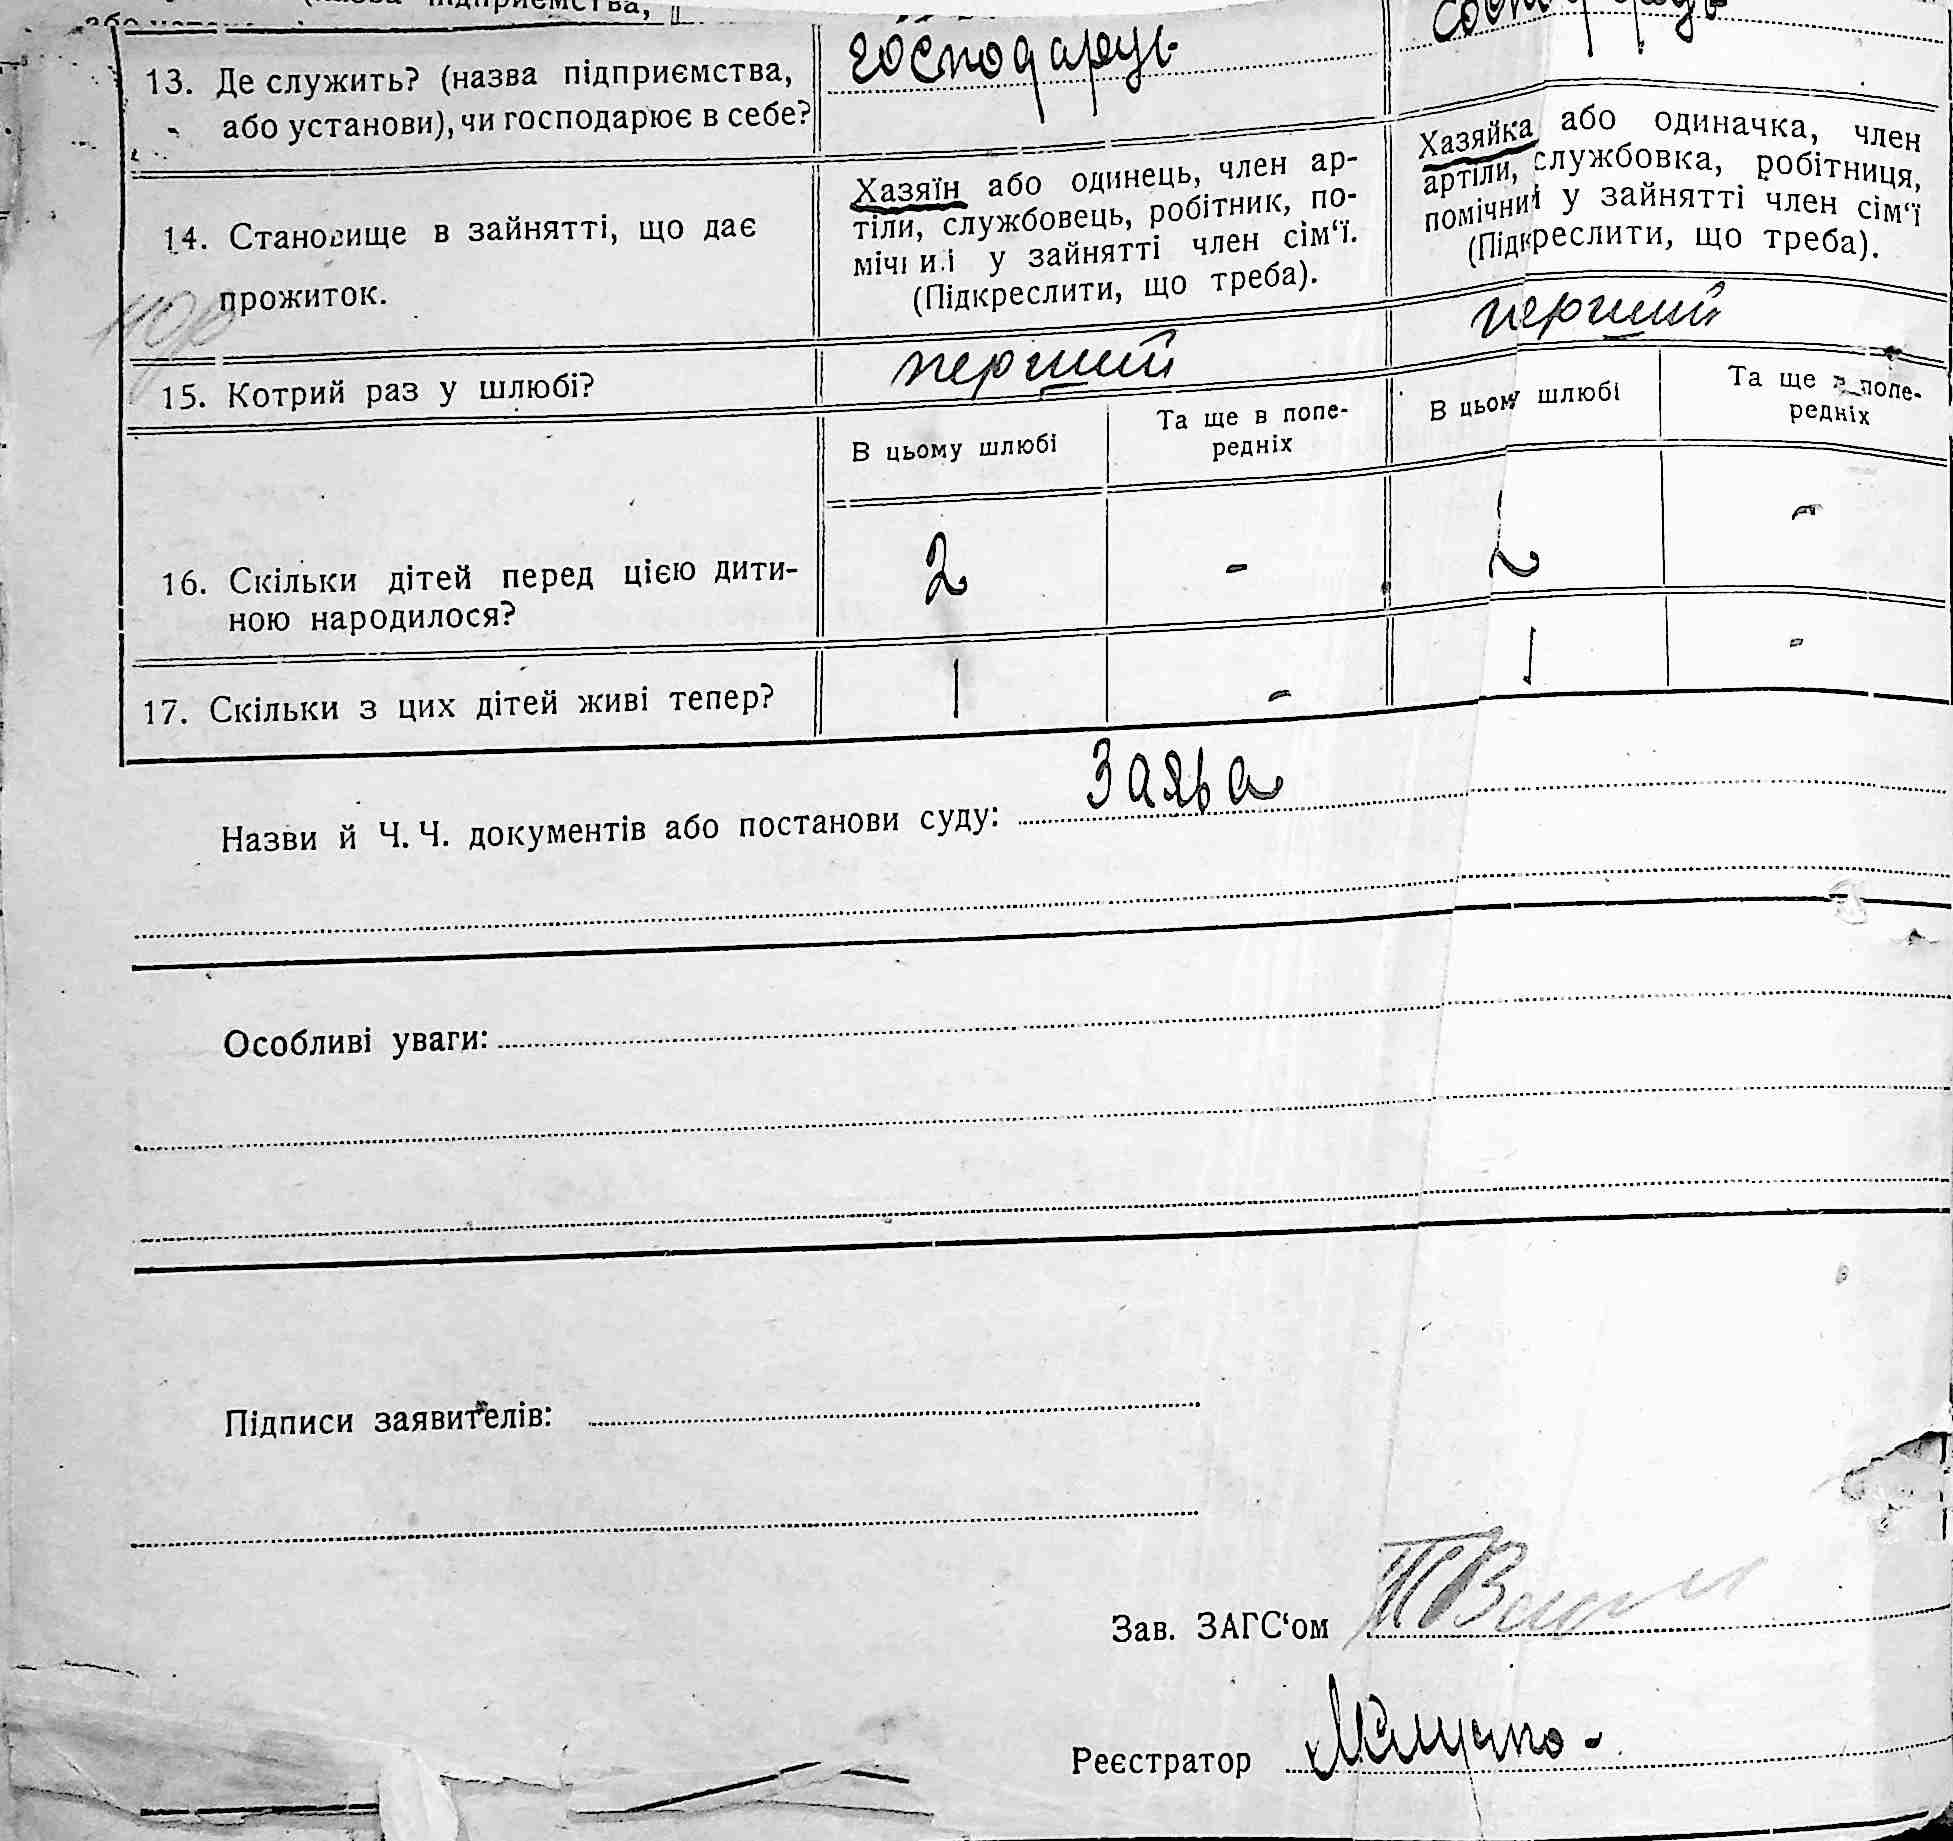 господарує
13. Де служить? (назва підприємства,
або установи), чи господарює в себе?
14. Становище в зайнятті, що дає
прожиток.
Хазяїн або одинець, член ар-
тіли, службовець, робітник, по-
мічний у зайнятті член сім‘ї.
(Підкреслити, що треба).
Хазяйка або одиначка, член
артіли, службовка, робітниця,
помічний у зайнятті член сім‘ї
(Підкреслити, що треба).
15. Котрий раз у шлюбі?
перший
перший
В цьому шлюбі
Та ще в попе-
редніх
В цьому шлюбі
Та ще в попе-
редніх
16. Скільки дітей перед цією дити-
ною народилося?
2 - 2 -
17. Скільки з цих дітей живі тепер?
1 - 1 -
Назви й Ч. Ч. документів або постанови суду: Заява
Особливі уваги:
Підписи заявителів:
Зав. ЗАГС‘ом
Реєстратор